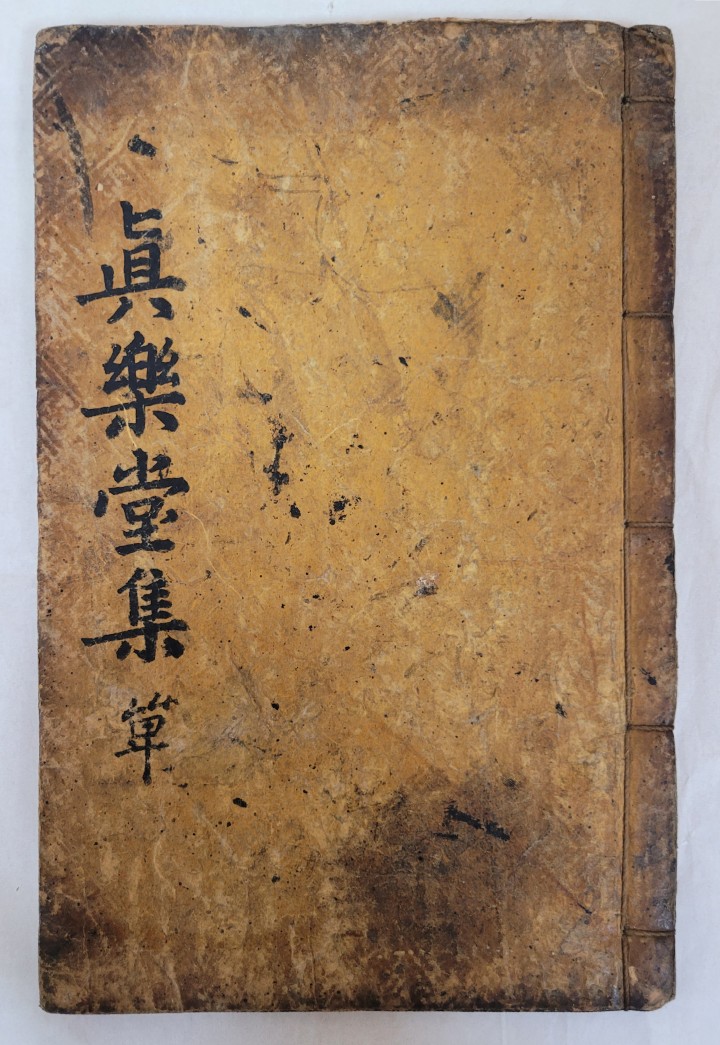 眞樂堂集 簞